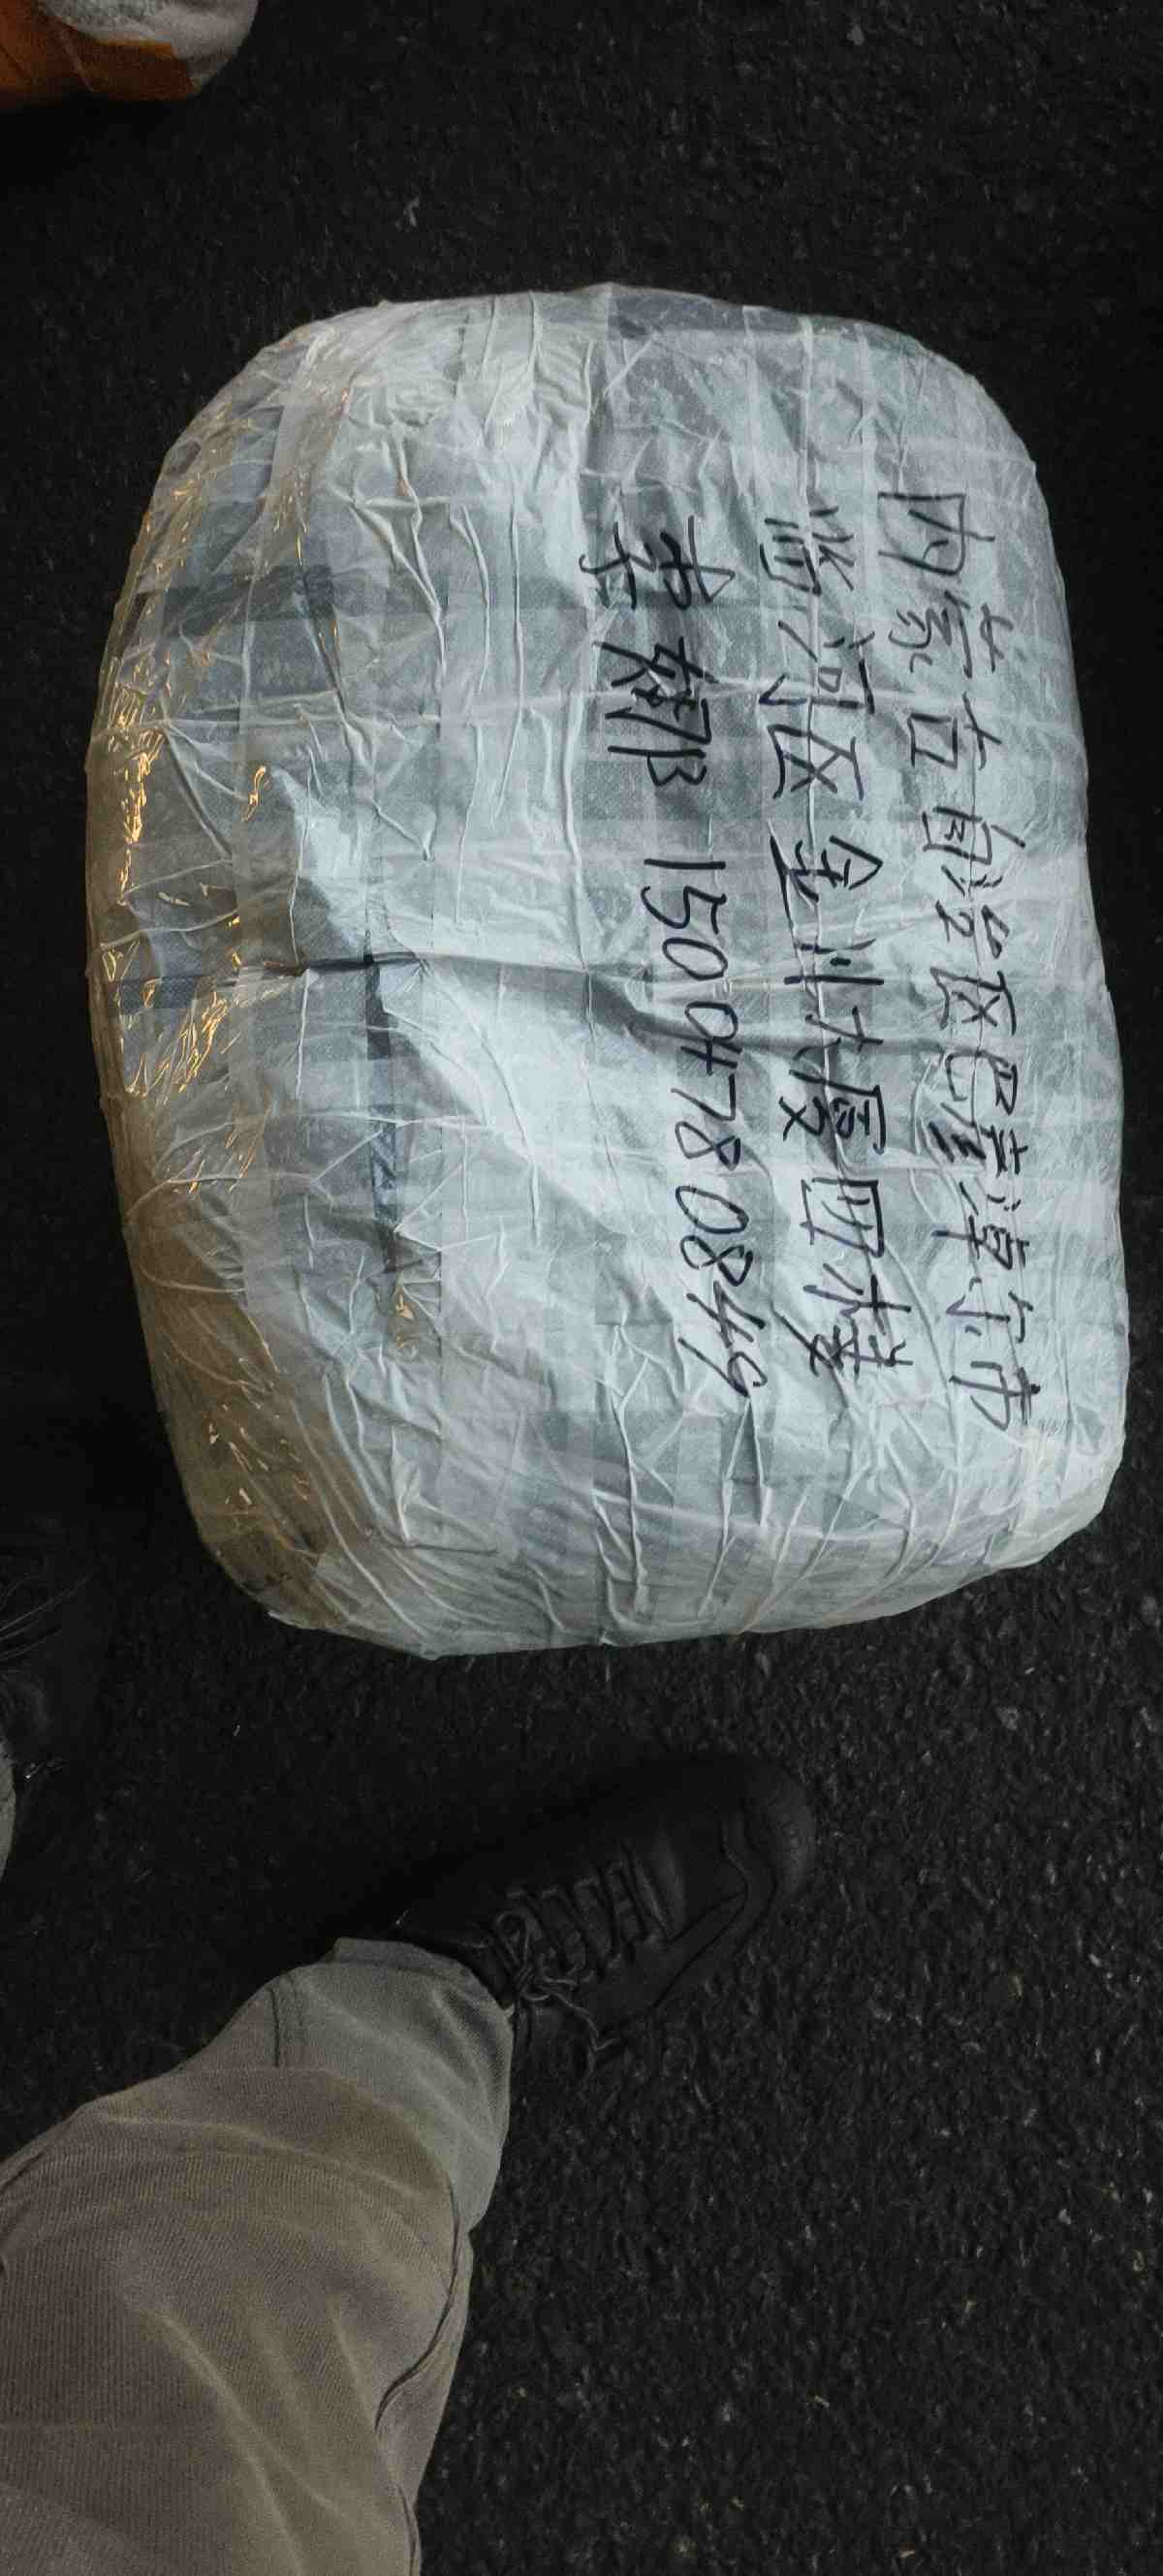 内蒙古自治区巴彦淖尔市
临河区金川大厦四楼
李娜 15004780849